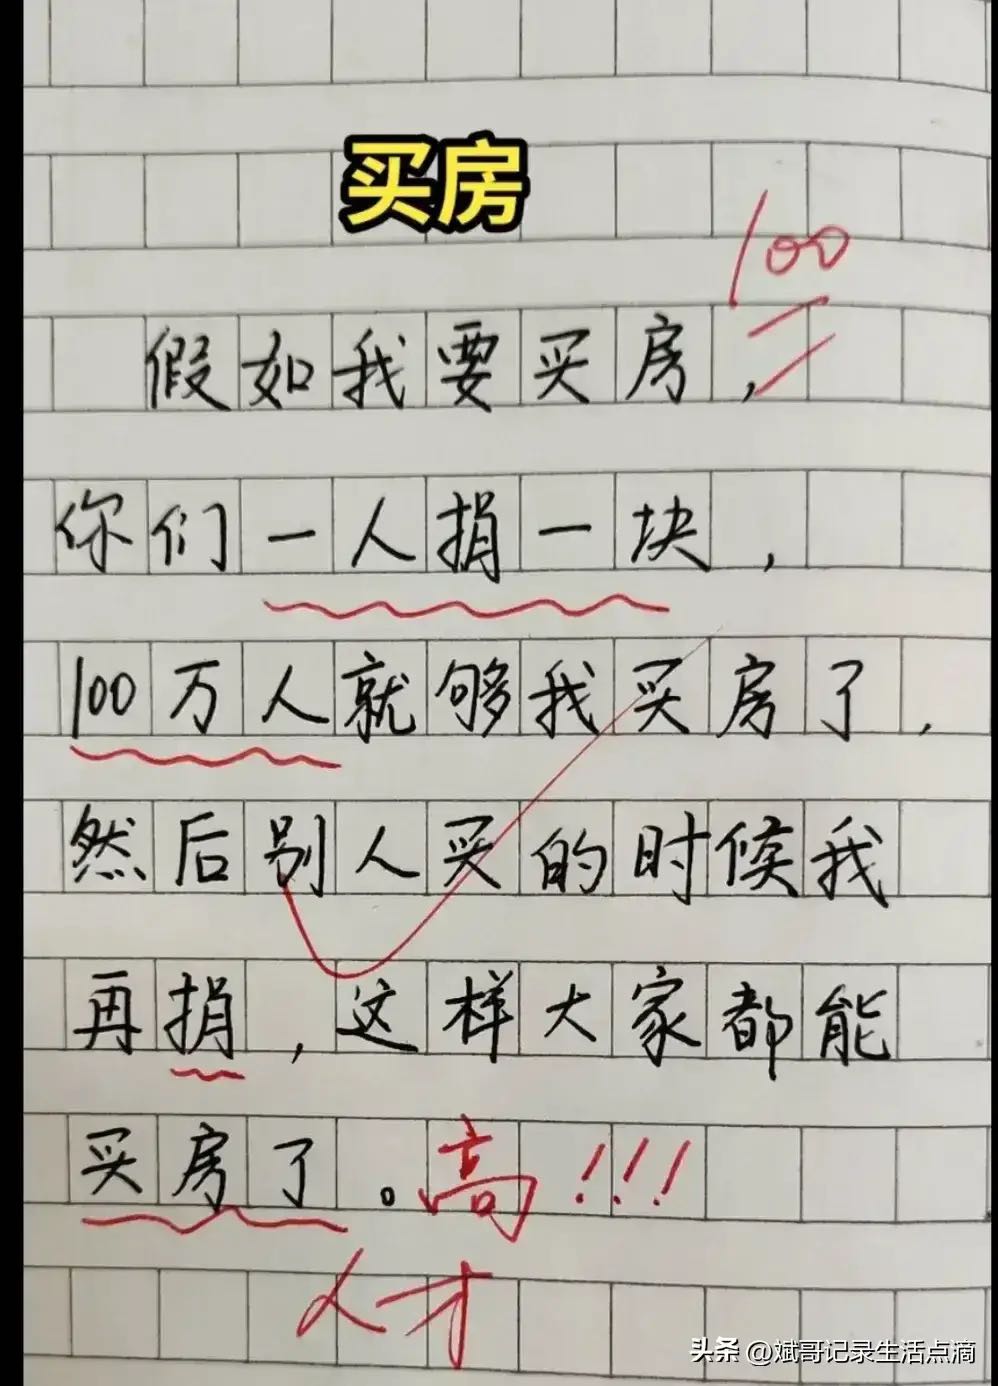 买房
100
假如我要买房，
你们一人捐一块，
100万人就够我买房了，
然后别人买的时候我
再捐，这样大家都能
买房了。高!!!
人才
头条 @斌哥记录生活点滴